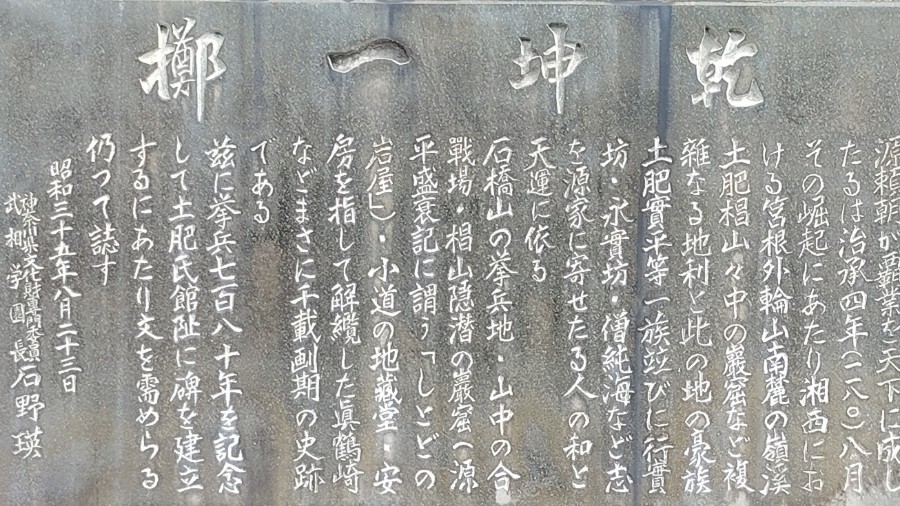 乾坤一擲
源頼朝が覇業を天下に成し
たるは治承四年(一一八〇)八月
その崛起にあたり湘西にお
ける筥根外輪山南麓の嶺渓
土肥椙山々中の巖窟など複
雑なる地利と此の地の豪族
土肥實平等一族竝びに行實
坊・永實坊・僧純海など志
を源家に寄せたる人の和と
天運に依る
石橋山の挙兵地・山中の合
戰場・椙山隠潜の巖窟(源
平盛衰記に謂う「しとどの
岩屋」)・小道の地蔵堂・安
房を指して解纜した眞鶴崎
などまさに千載画期の史跡
である
茲に挙兵七百八十年を記念
して土肥氏館阯に碑を建立
するにあたり文を需めらる
仍つて誌す
昭和三十五年八月二十三日
神奈川県文化財専門委員
武相学園長
石野瑛